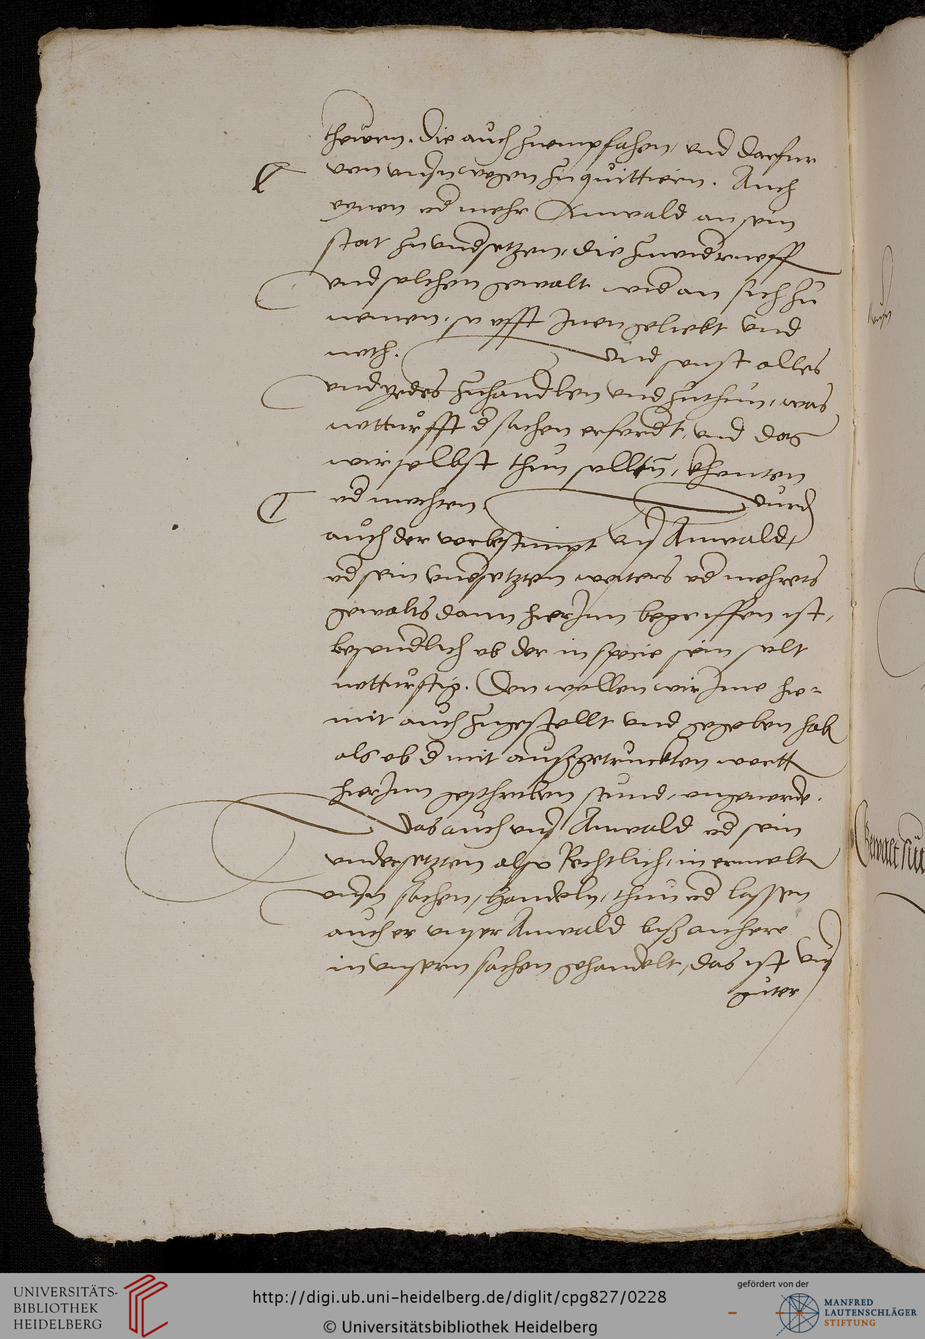 thewrn. Die auch zuempfahen, und darfur
von unsern wegen zu quittiern. Auch
eynen od mehr Anwald an sein
stat zu undsetzen, die zuwidrueff
und solchen gewalt wid an sich zu
nemen, so offt Inen geliebt und
noth. Und sunst alles
und yedes zuhandlen und zuthun, was
notturfft d sachen erfordt, und das
wir selbst thun sollen, khonten
od mochten Durch
auch der vorbestimpt uns Anwald,
od sein undsetzten weyters od mehrers
gewalts dann hierInn begriffen ist,
besondlich ob der in specie sein solt
notturftig. Den wollen wir Ime hie-
mit auch zugestellt und gegeben hab
als ob d mit außgetruckten wortt
hierInn geschriben stund, ungeverde.
Was auch uns Anwald od sein
undersetzten also Rechtlich, in ermelt
unsn sachen, handeln, thun od lassen
auch er unser Anwald biß anhero
in unsern sachen gehandelt, das ist uns
guter
Gewalt zu
UNIVERSITÄTS-
BIBLIOTHEK
HEIDELBERG
http://digi.ub.uni-heidelberg.de/diglit/cpg827/0228
© Universitätsbibliothek Heidelberg
gefördert von der
MANFRED
LAUTENSCHLÄGER
STIFTUNG